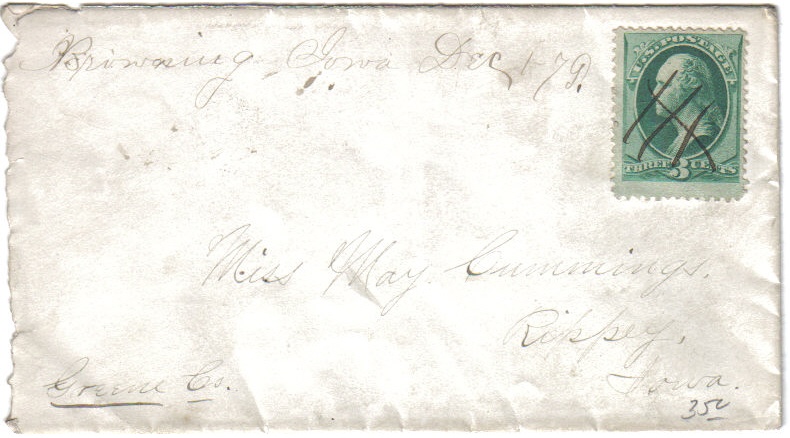 Browning Iowa Dec 1 79.
U.S. POSTAGE
THREE 3 CENTS
Miss May Cummings.
Rippey,
Greene Co.
Iowa.
350